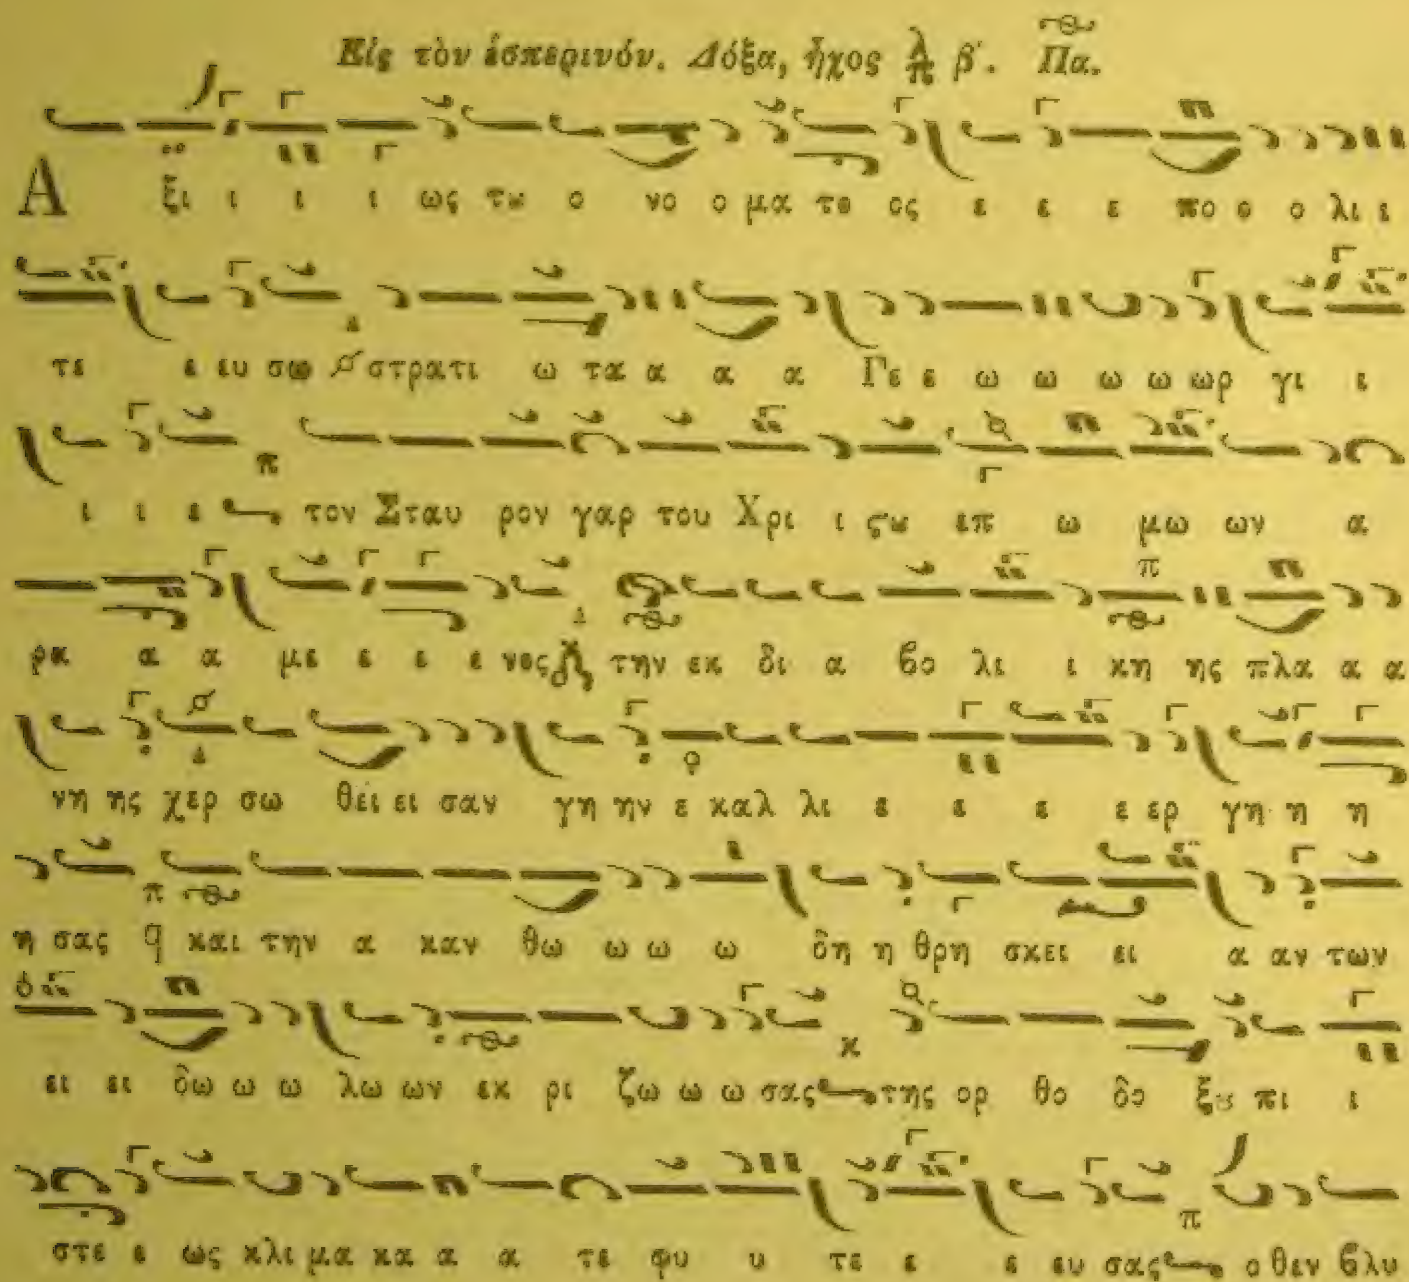 Εἰς τὸν ἑσπερινόν. Δόξα, ἦχος λ π β΄. Πα.
Α ξι ι ι ι ως τω ο νο ο μα το ος ε ε ε πο ο ο λι ι
τε ε ευ σω στρατι ω τα α α α Γε ε ω ω ω ω ωρ γι ι
ι ι ε τον Σταυ ρον γαρ του Χρι ι ϛω επ ω μω ων α
ρα α α με ε ε ε νος την εκ δι α βο λι ι κη ης πλα α α
νη ης χερ σω θει ει σαν γη ην ε καλ λι ε ε ε ε ερ γη η η
η σας και την α καν θω ω ω ω δη η θρη σκει ει α αν των
ει ει δω ω ω λω ων εκ ρι ζω ω ω σας της ορ θο δο ξȣ πι ι
στε ε ως κλι μα κα α α τε φυ υ τε ε ε ευ σας ο θεν βλυ